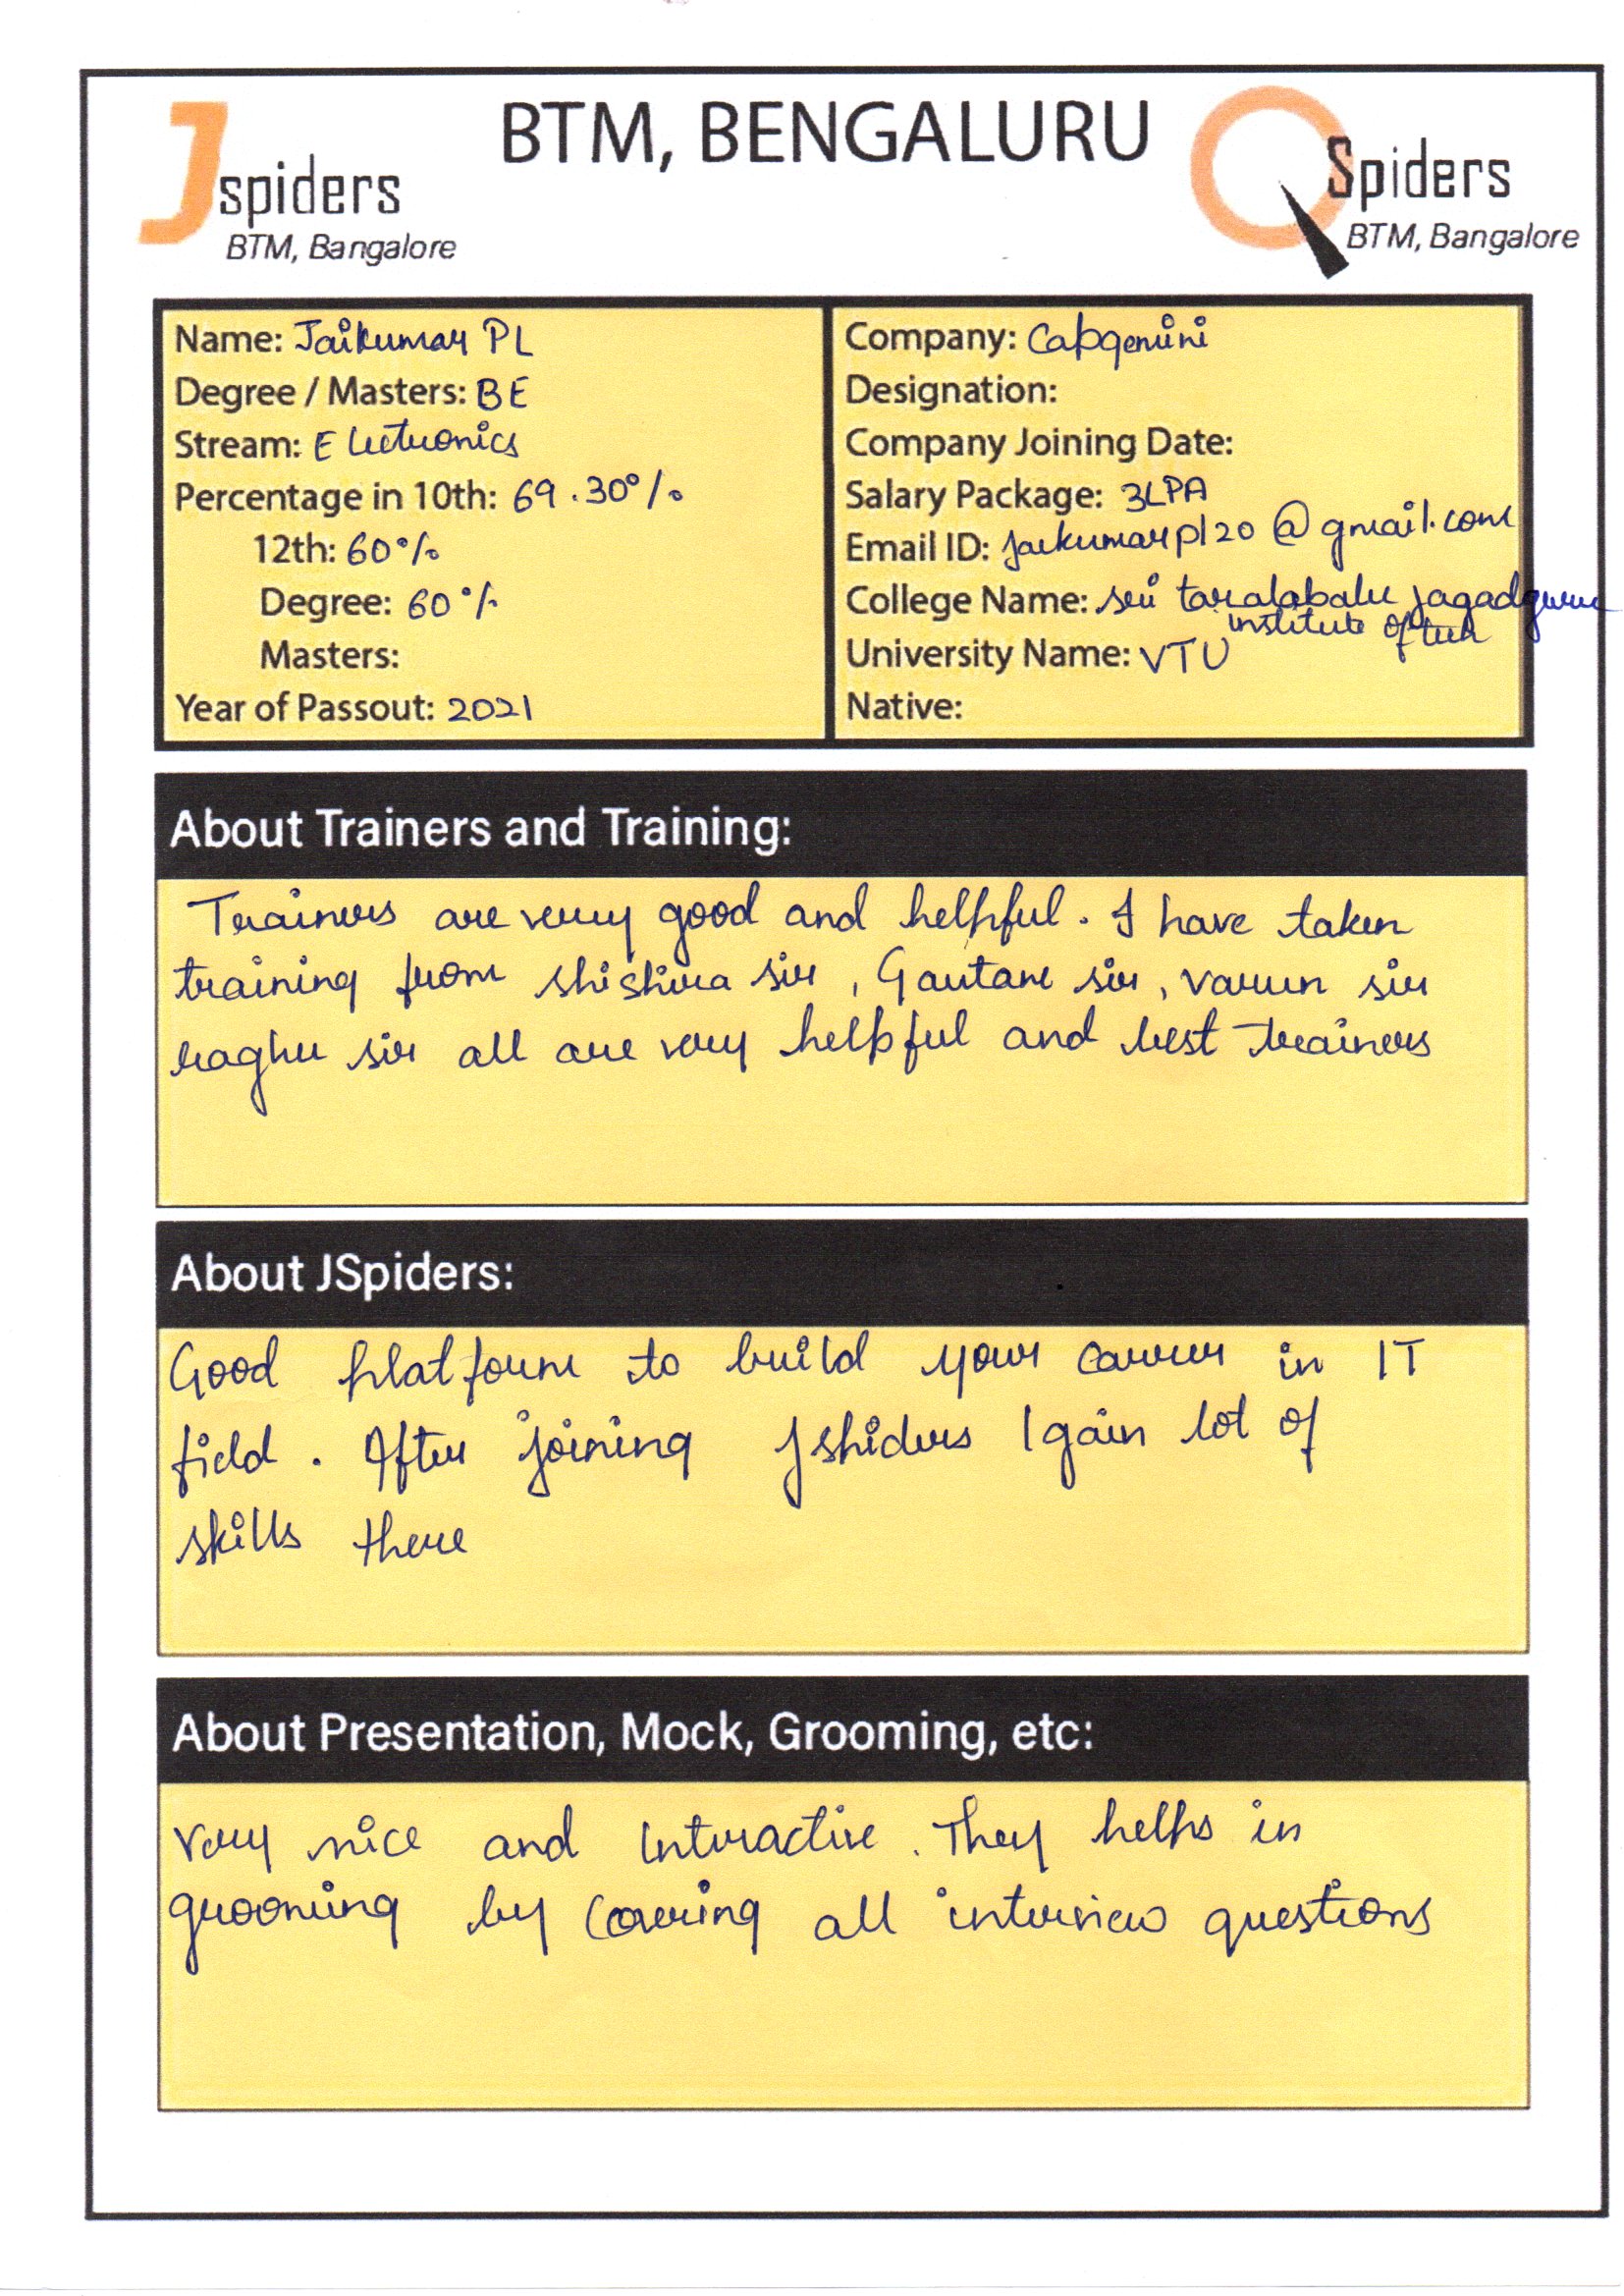 BTM, BENGALURU
Jspiders
BTM, Bangalore
QSpiders
BTM, Bangalore
Name: Jaikumar PL
Degree / Masters: BE
Stream: Electronics
Percentage in 10th: 69.30%
12th: 60%
Degree: 60%
Masters:
Year of Passout: 2021
Company: Capgemini
Designation:
Company Joining Date:
Salary Package: 3LPA
Email ID: jaikumarpl20@gmail.com
College Name: sri taralabalu jagadguru
institute of tech
University Name: VTU
Native:
About Trainers and Training:
Trainers are very good and helpful. I have taken
training from shishira sir, Gautam sir, varun sir
raghu sir all are very helpful and best trainers
About JSpiders:
Good platform to build your career in IT
field. After joining Jspiders I gain lot of
skills there
About Presentation, Mock, Grooming, etc:
Very nice and Interactive. They helps in
grooming by covering all interview questions